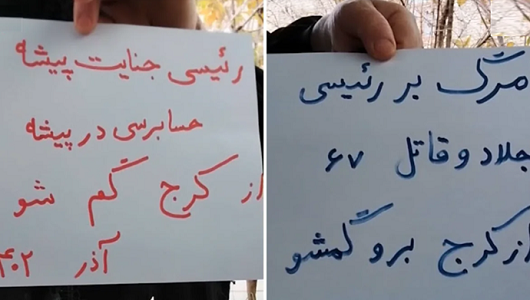 رئیسی جنایت پیشه
حسابرسی در پیشه
از کرج گم شو
آذر ۴۰۲
مرگ بر رئیسی
جلاد و قاتل ۶۷
از کرج برو گمشو